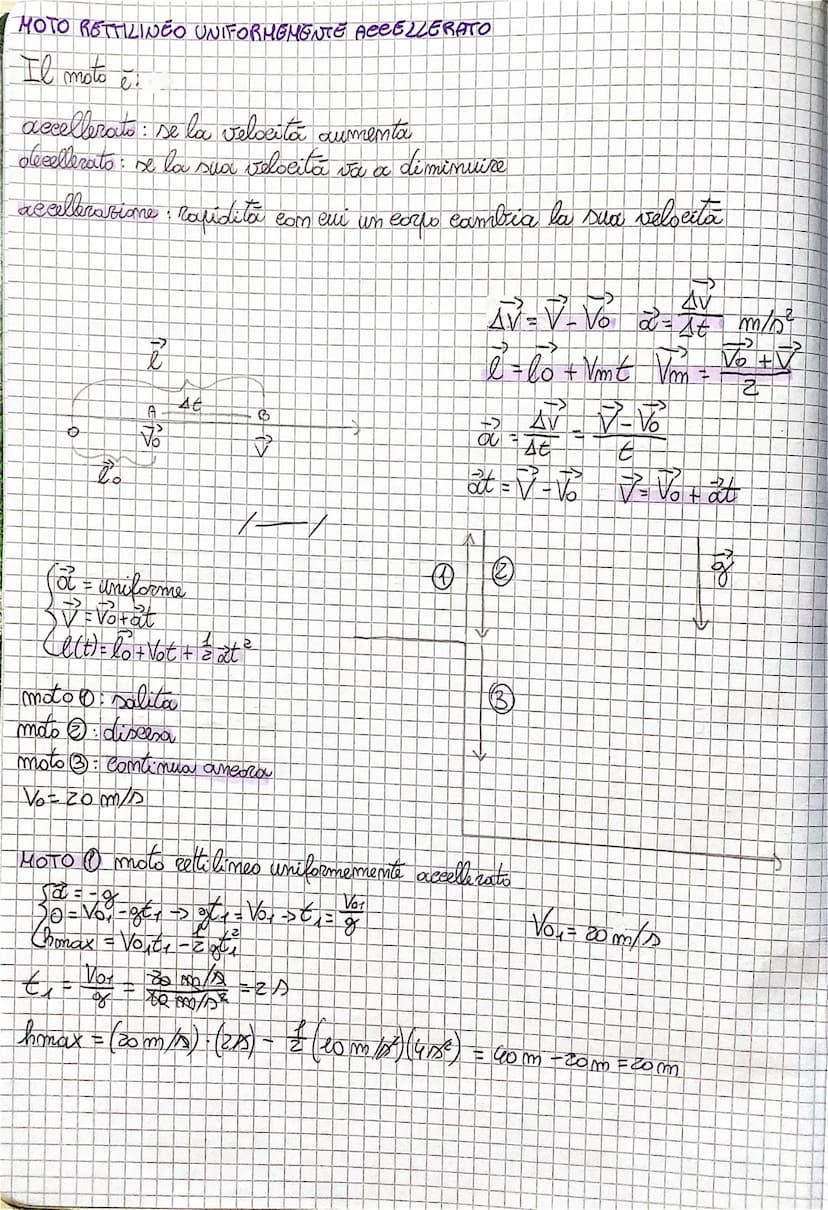 MOTO RETTILINEO UNIFORMEMENTE ACCELLERATO
Il moto è:
accellerato: se la velocità aumenta
decellerato: se la sua velocità va a diminuire
accellerazione: rapidità con cui un corpo cambia la sua velocità
Δv⃗ = v⃗ - v⃗₀ a⃗ = Δv⃗/Δt m/s²
l⃗ = l⃗₀ + Vmt V⃗m = (v⃗₀ + v⃗)/2
l⃗
A Δt B
0 v⃗₀ v⃗
l⃗₀
a⃗ = Δv⃗/Δt = (v⃗ - v⃗₀)/t
a⃗t = v⃗ - v⃗₀ v⃗ = v⃗₀ + a⃗t
① ② g⃗
③
{a⃗ = uniforme
v⃗ = v⃗₀ + a⃗t
l(t) = l⃗₀ + V₀t + 1/2 a⃗t²
moto ①: salita
moto ②: discesa
moto ③: continua ancora
V₀ = 20 m/s
MOTO ① moto rettilineo uniformemente accellerato
{a⃗ = -g
0 = V₀₁ - gt₁ → gt₁ = V₀₁ → t₁ = V₀₁/g
hmax = V₀₁t₁ - 1/2 gt₁²
V₀₁ = 20 m/s
t₁ = V₀₁/g = 20 m/s / 10 m/s² = 2s
hmax = (20 m/s) · (2s) - 1/2 (10 m/s²)(4s²) = 40m - 20m = 20m